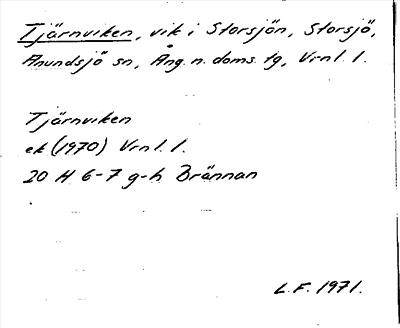 Tjärnviken, vik i Storsjön, Storsjö,
Anundsjö sn, Ång. n. doms. tg, Vrnl. 1.
Tjärnviken
ek (1970) Vrnl. 1.
20 H 6-7 g-h Brännan
L.F. 1971.